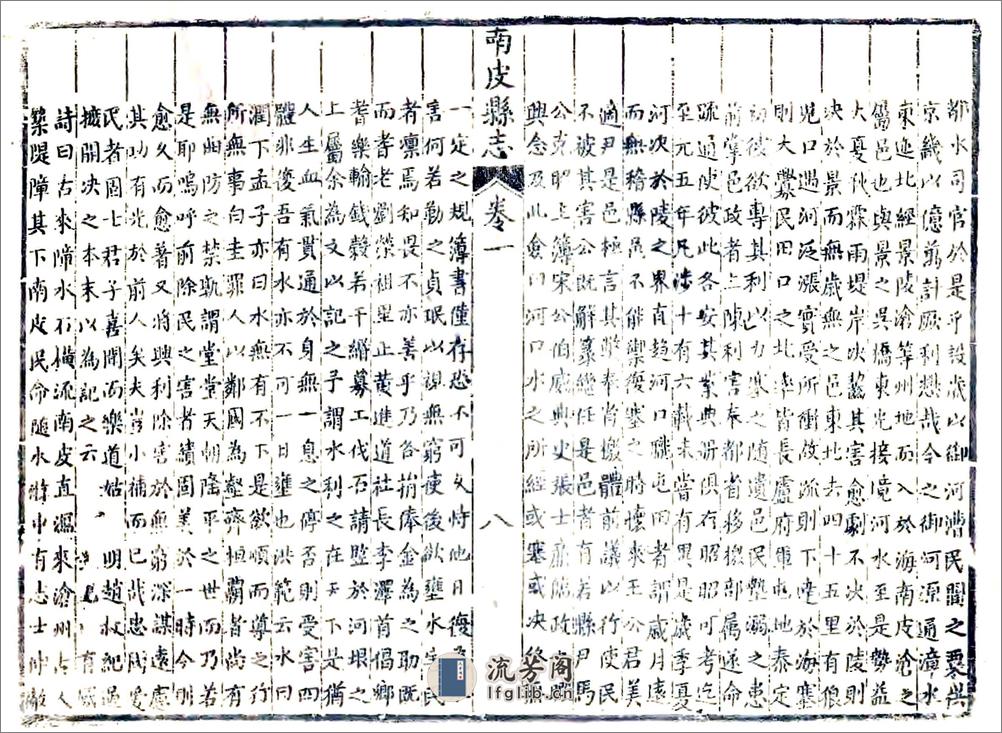 都水司官於是乎設歲以御河漕民間之粟此
京畿以億萬計厥利懋哉今之御河源通漳水
東迤北經景陵滄等州地而入於海南皮滄之
屬邑也與景之吳橋東光接境河水至是勢益
大夏秋霖雨堤岸決齧其害愈劇不決於陵則
決於景而無歲無之邑東北去四十五里有狼
兒口遇河泛漲實受所衝故疏則下產於海塞
則大爨民田口之北率皆長盧府軍屯地泰定
初彼欲專其利以力塞之随遺邑民墊溺之患
前掌邑政者上陳利害奉都省移檄部属遂命
疏通使彼此各安其業典冊俱存昭昭可考迄
至元五年凡涉十有六載未嘗有異是歲季夏
河決於陵之界直趨河口職屯田者謂歲月遠
而無稽縣邑不能禦復塞之時懷來王公君美
適尹是邑極言其弊奉省檄體前議以行使民
不被其害公既解篆繼任是邑者有若縣尹馬
公克昭主簿宋公伯威典史張士廉臨政
興念及此僉曰河口水之所經或塞或決終無
南皮縣志 卷一 八
一定之規簿書僅存恐不可久恃他日復
害何若勒之貞珉以親無窮使後欲壅水害民
者凜焉知畏不亦善乎乃各捐俸金為之助既
而耆老劉榮祖里正黃進道社長李澤首倡鄉
耆樂輸錢穀若干緡募工伐石請竪於河垠之
上屬余為文以記之予謂水利之在天下是猶
人生血氣貫通於身無一息之停否則受害四
體非復吾有水亦不可一日壅也洪範云水曰
潤下孟子亦曰水無有不下是欲順而導之行
所無事白圭罪人以鄰國為壑齊桓霸者尚有
無曲防之禁孰謂堂堂天朝隆平之世而乃若
是耶嗚呼前除民之害者績固美於一時今則
愈久而愈著又將興利除害於無窮深謀遠慮
其功有光於前人矣夫豈小補而已哉忠誠愛
民者園士君子喜聞而樂道姑
摭開決之本末以為記之云 明趙叔紀過 有感
詩曰古來障水石橫流南皮直瀉來滄州古人
築隄障其下南皮民命隨水游中有志士仲敬
流芳阁
lfglib.com